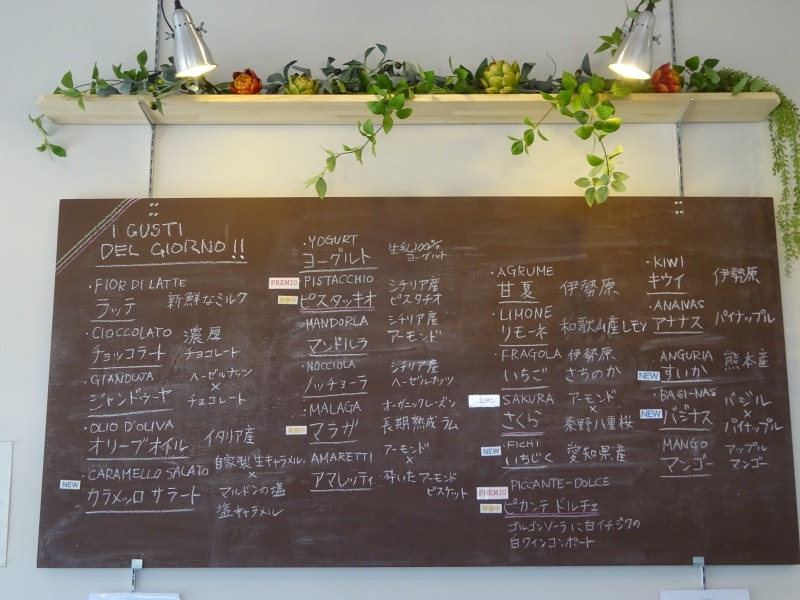 I GUSTI
DEL GIORNO!!
・FIOR DI LATTE
ラッテ 新鮮なミルク
・CIOCCOLATO 濃厚
チョッコラート チョコレート
・GIANDUJA ヘーゼルナッツ
×
ジャンドゥーヤ チョコレート
・OLIO D'OLIVA
オリーブオイル イタリア産
・CARAMELLO SALATO 自家製生キャラメル
×
NEW
カラメッロ サラート マルドンの塩
塩キャラメル
・YOGURT 生乳100%
ヨーグルト ヨーグルト
PREMIO
・PISTACCHIO シチリア産
ピスタッキオ ピスタチオ
・MANDORLA シチリア産
マンドルラ アーモンド
・NOCCIOLA シチリア産
ノッチョーラ ヘーゼルナッツ
・MALAGA オーガニックレーズン
マラガ 長期熟成ラム
・AMARETTI アーモンド
×
アマレッティ 砕いたアーモンド
ビスケット
・AGRUME
甘夏 伊勢原
・LIMONE
リモーネ 和歌山産レモン
・FRAGOLA 伊勢原
いちご さちのか
・SAKURA アーモンド
×
さくら 秦野八重桜
NEW
・FICHI
いちじく 愛知県産
PREMIO
・PICCANTE-DOLCE
ピカンテ ドルチェ
ゴルゴンゾーラに白イチジクの
白ワインコンポート
・KIWI
キウイ 伊勢原
・ANANAS
アナナス パイナップル
・ANGURIA 熊本産
NEW
すいか
・BASI-NAS バジル
×
NEW
バジナス パイナップル
・MANGO アップル
マンゴー マンゴー